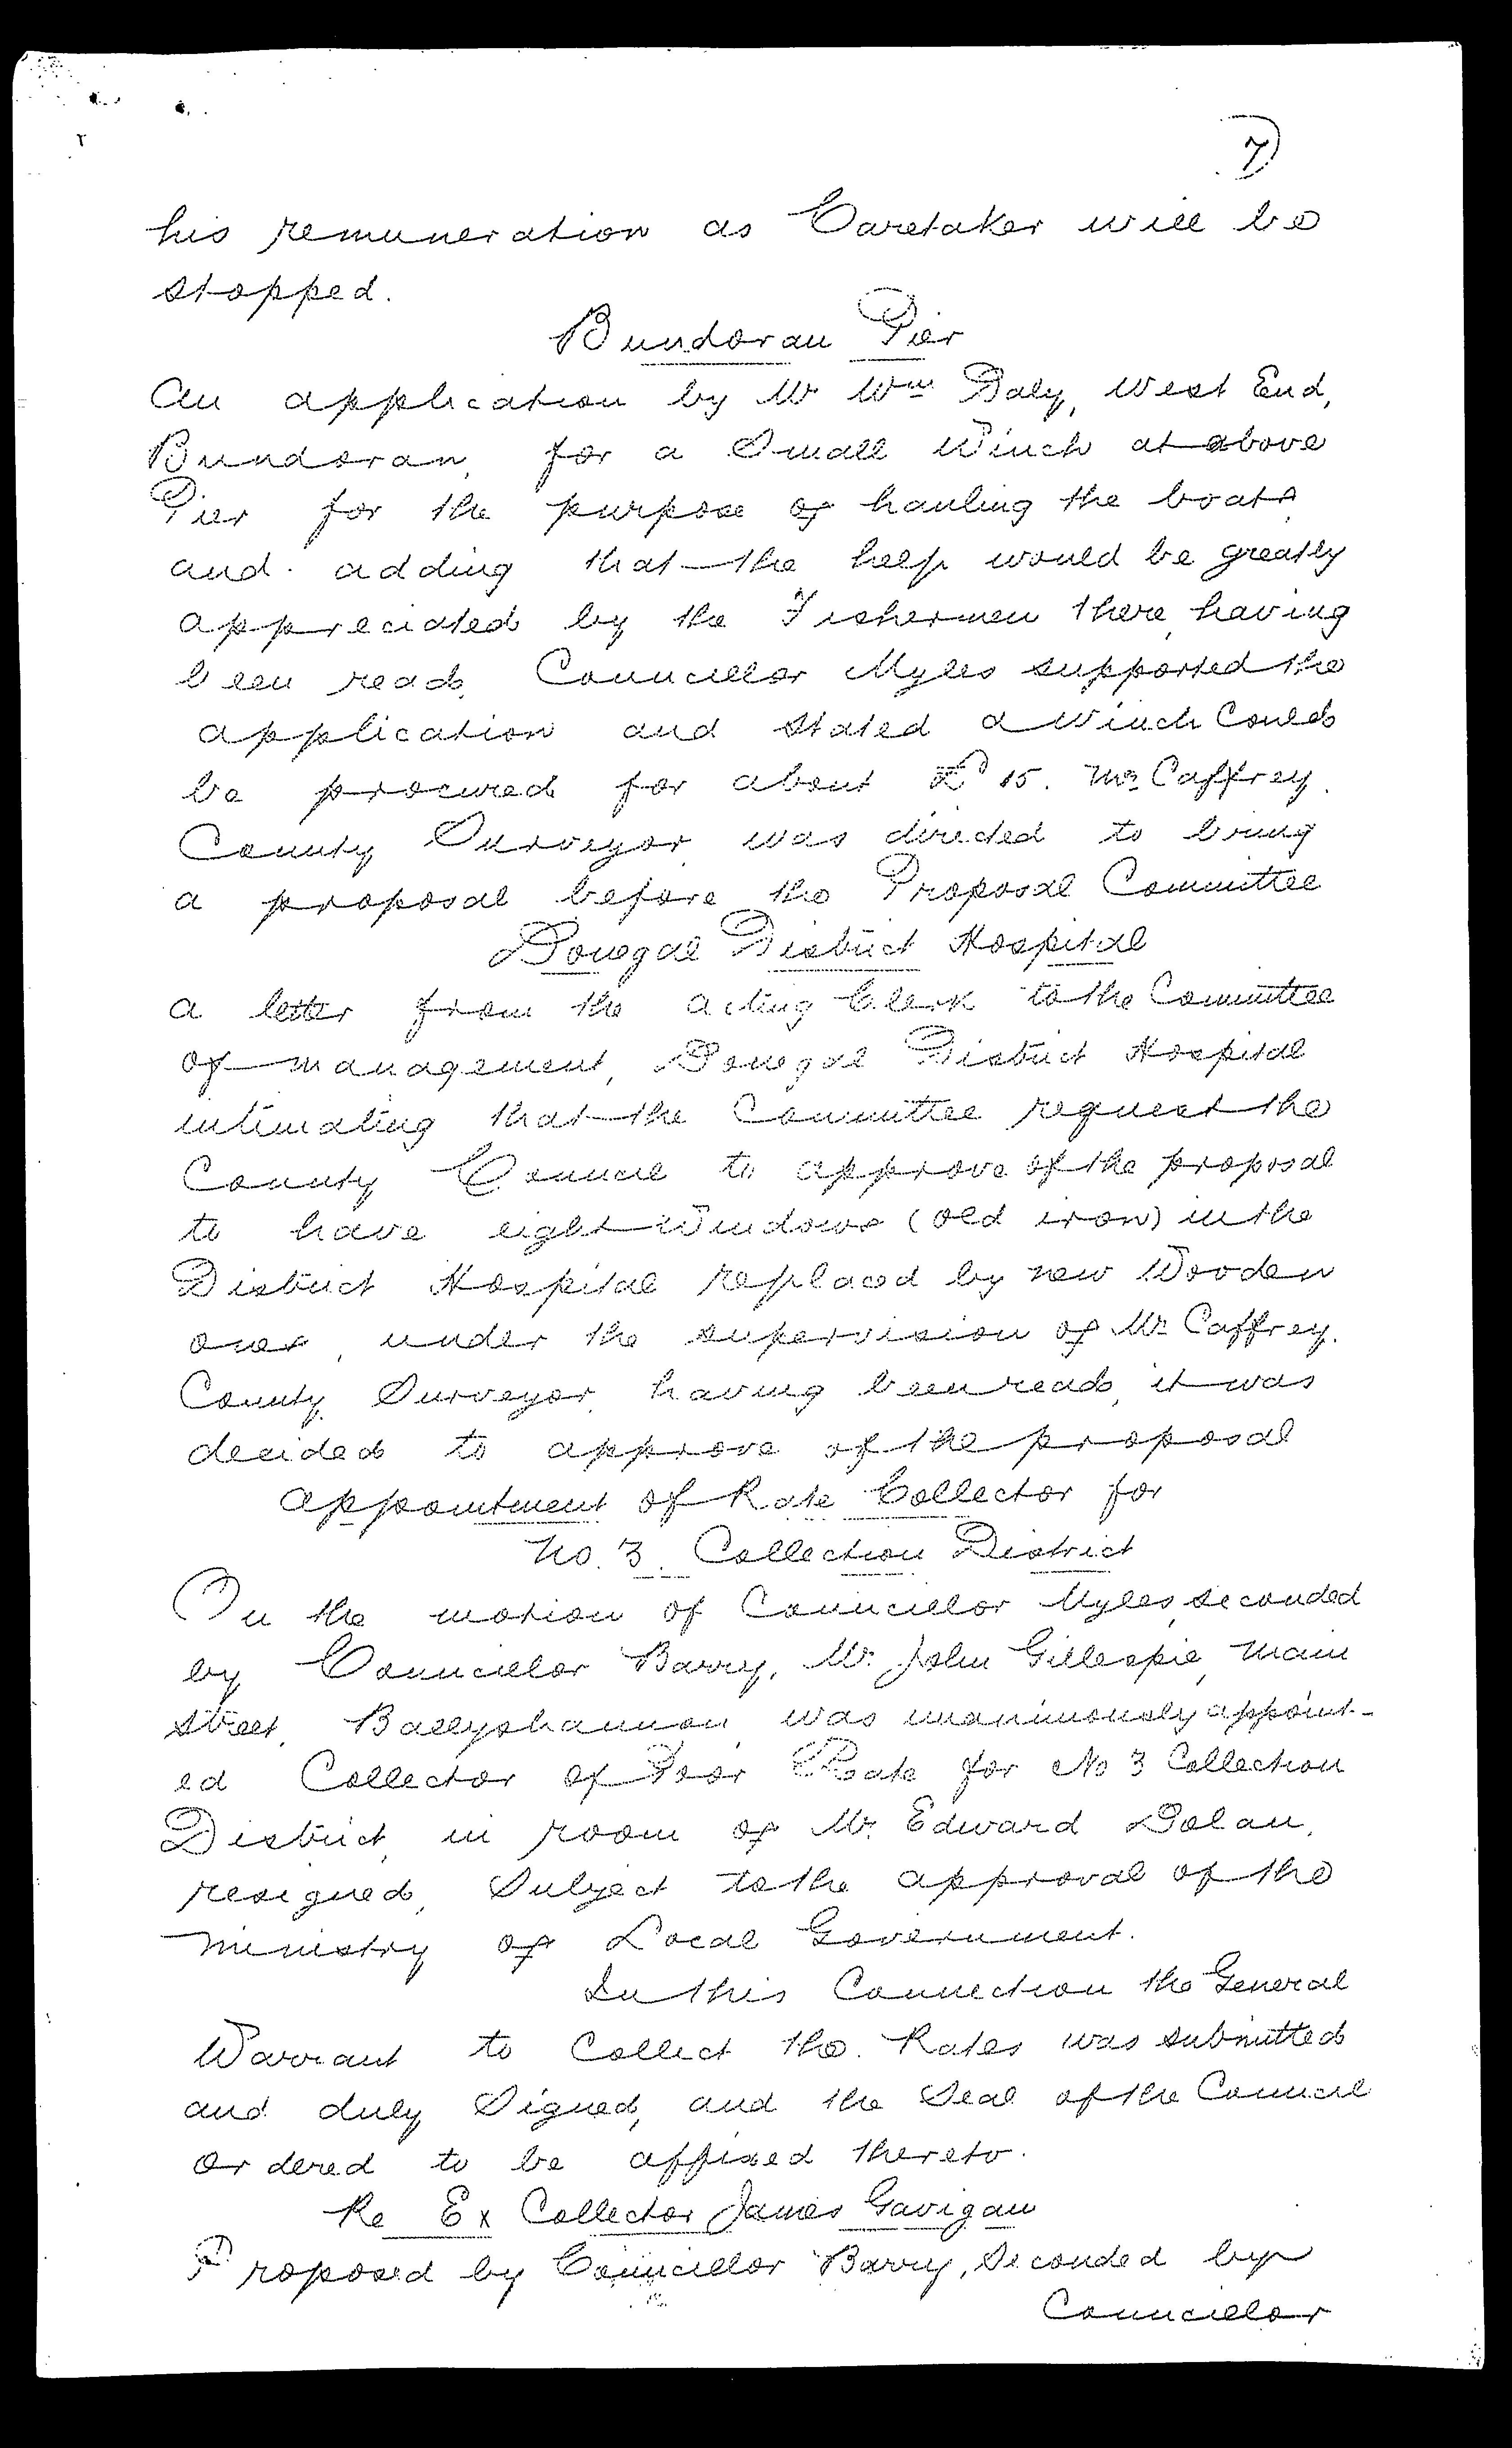 7)
his remuneration as Caretaker will be
stopped.
Bundoran Pier
An application by Mr Wm Daly, West End,
Bundoran, for a Small Winch at above
Pier for the purpose of hauling the boats
and adding that the help would be greatly
appreciated by the Fishermen there, having
been read, Councillor Myles supported the
application and stated a Winch Could
be procured for about £15. Mr Caffrey.
County Surveyor was directed to bring
a proposal before the Proposal Committee
Donegal District Hospital
A letter from the Acting Clerk to the Committee
of Management, Donegal District Hospital
intimating that the Committee request the
County Council to approve of the proposal
to have eight Windows (old iron) in the
District Hospital replaced by new Wooden
ones, under the supervision of Mr Caffrey.
County Surveyor, having been read, it was
decided to approve of the proposal
Appointment of Rate Collector for
No. 3. Collection District
On the motion of Councillor Myles, seconded
by Councillor Barry, Mr. John Gillespie, Main
Street, Ballyshannon, was unanimously appoint-
ed Collector of Poor Rate for No 3 Collection
District, in room of Mr. Edward Dolan,
resigned, Subject to the approval of the
Ministry of Local Government.
In this Connection the General
Warrant to Collect the Rates was submitted
and duly Signed, and the Seal of the Council
ordered to be affixed thereto.
Re Ex Collector James Gavigan
Proposed by Councillor Barry, Seconded by
Councillor